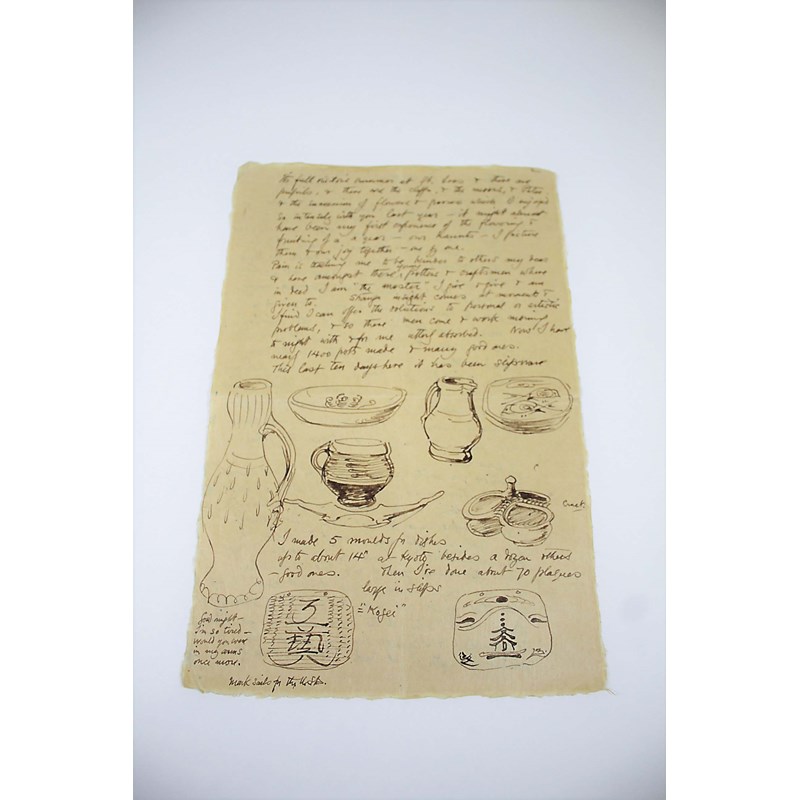 the full summer at St. Ives & there are
& there are the cliffs, & the moors, &
& the succession of flowers & which I enjoyed
so intensely with you last year — it might almost
have been my first experience of the flowering &
fruiting of a year — our haunts — I picture
them & our joy together — one by one.
Pain is teaching me to be kinder to others my dear
& here amongst these young potters & craftsmen where
in deed I am "the master" I give & give & am
given to. Strange insight comes at moments &
I find I can offer the solutions to personal or artistic
problems, & so these men come & work morning
& night with & for me utterly absorbed. Now I have
nearly 1400 pots made & many good ones.
This last ten days here it has been slipware
Cruet
I made 5 moulds for dishes
up to about 14" at Kyoto besides a dozen others
— good ones. Then I've done about 70 plaques
large in slips
= "Kogei"
工藝
Good night —
I'm so tired —
would you were
in my arms
once more.
Mark sends for the